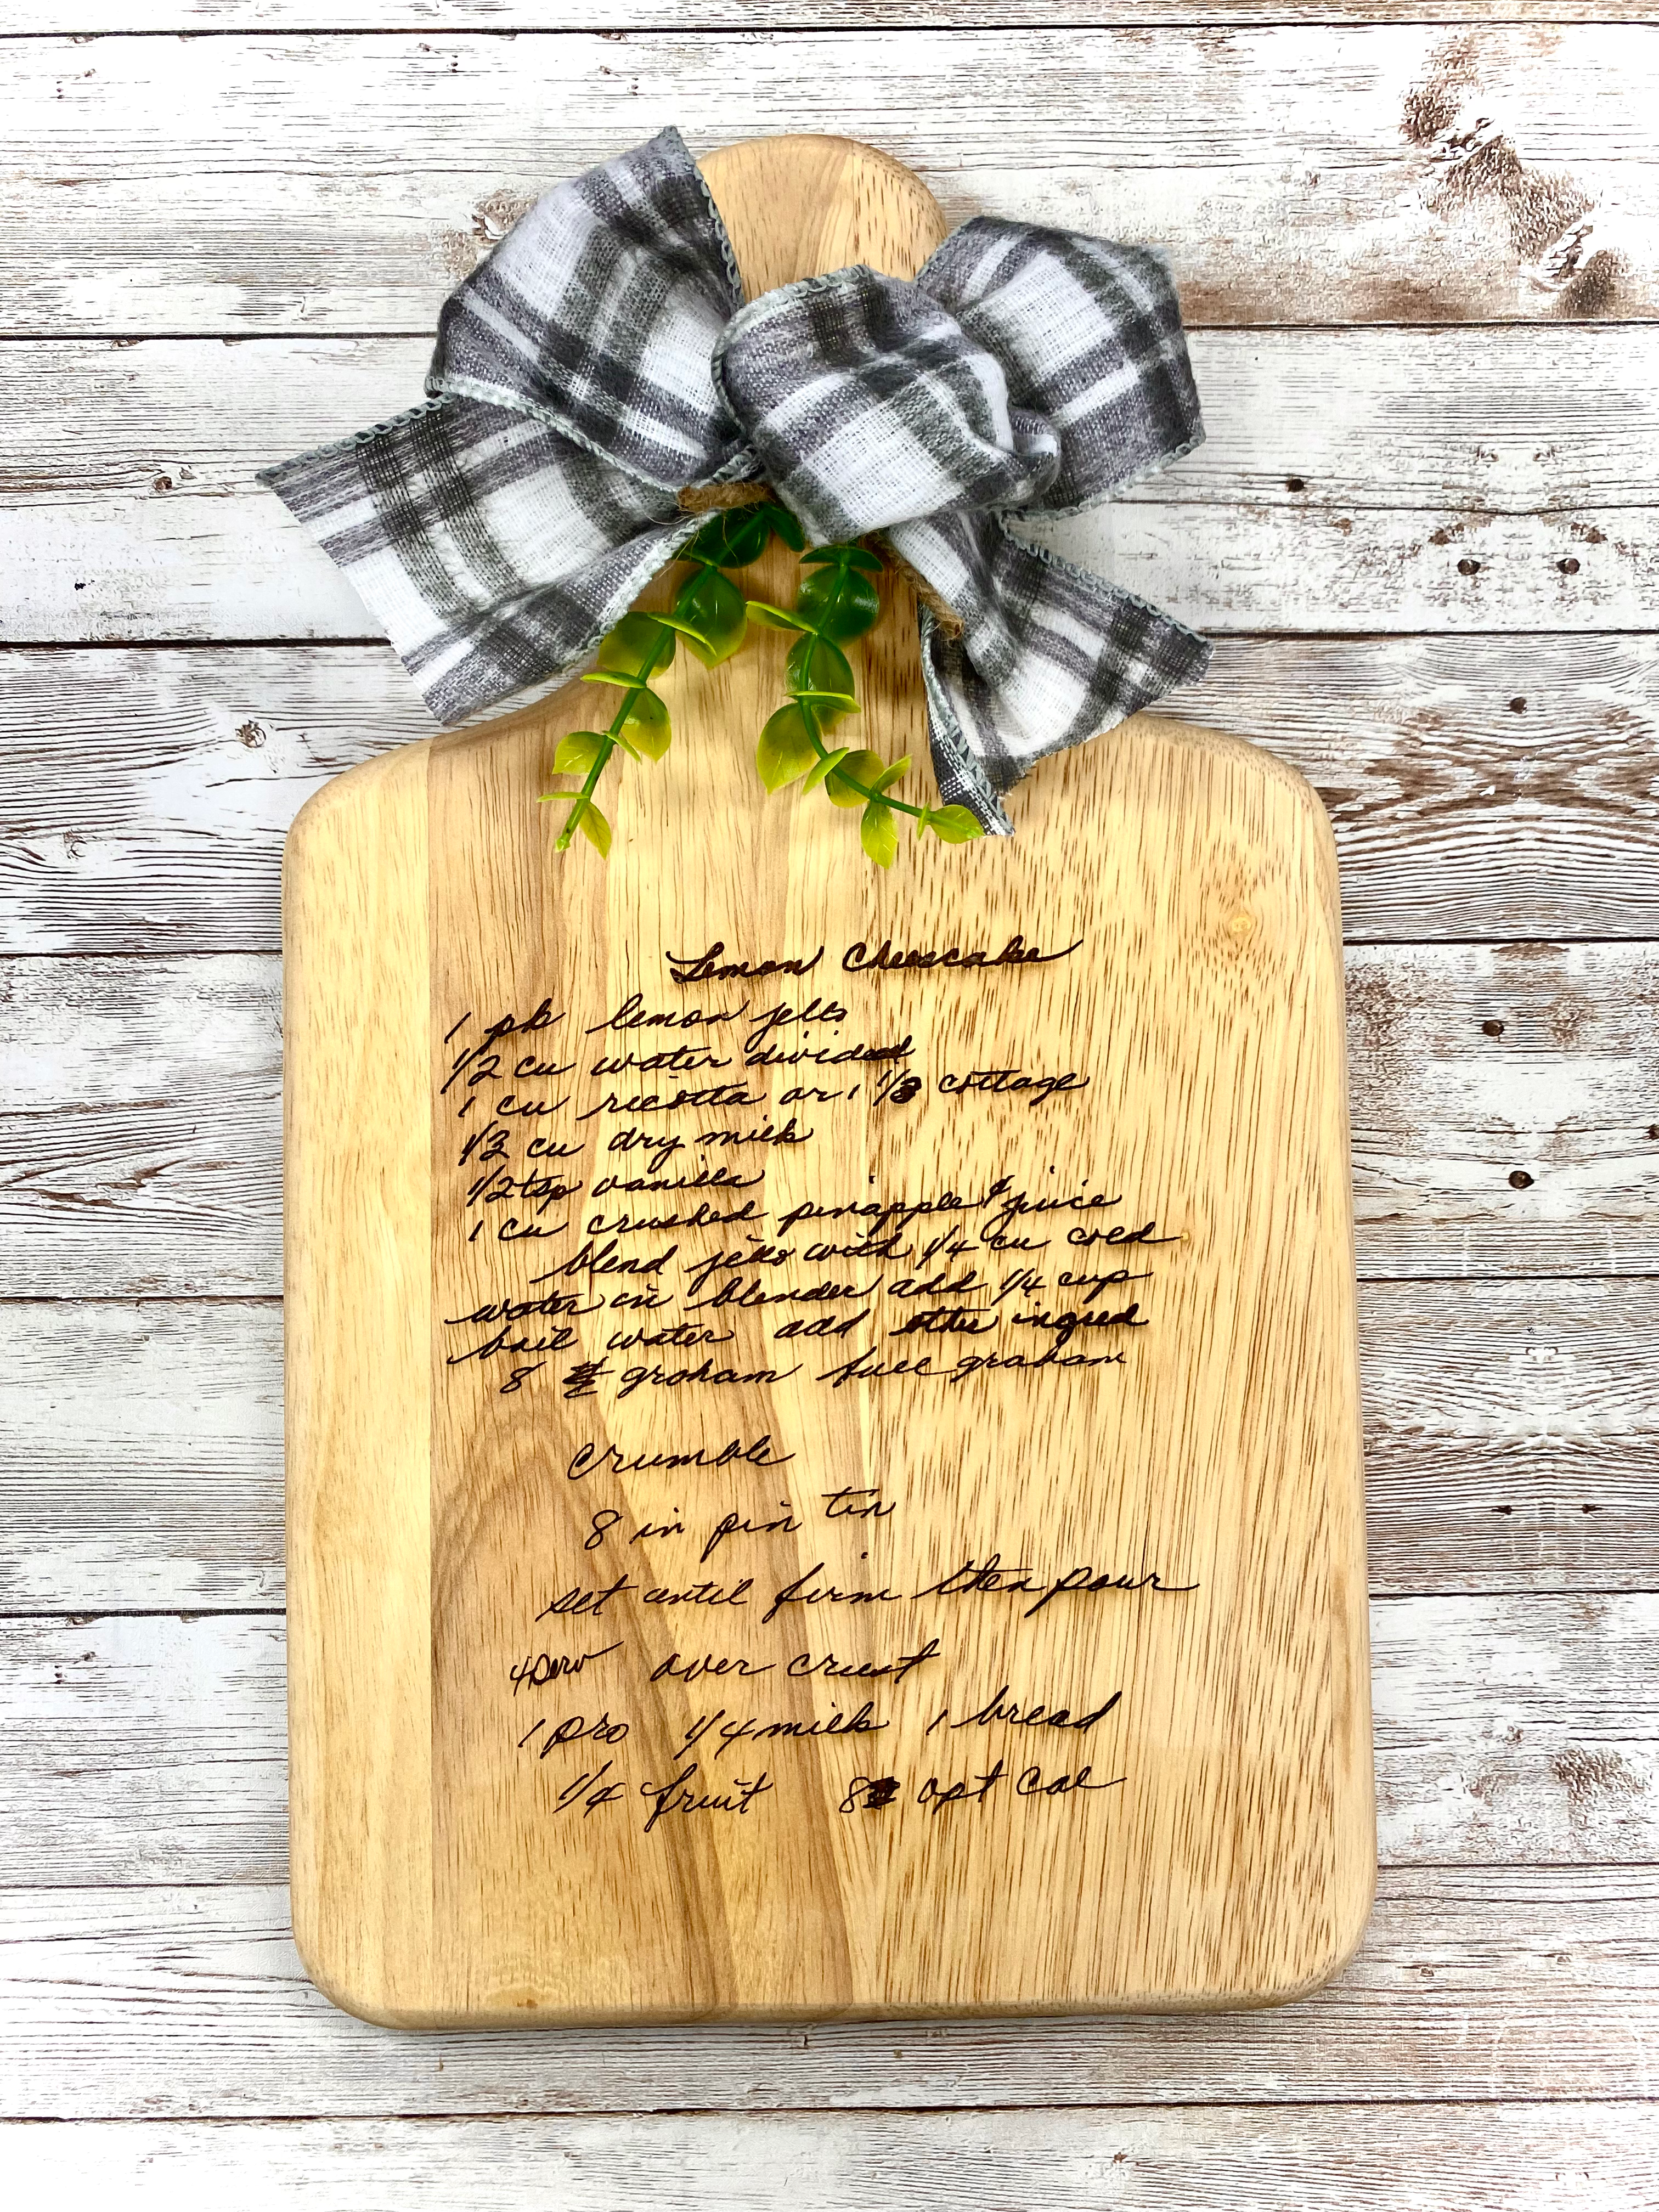 Lemon Cheesecake
1 pk lemon jello
1/2 cu water divided
1 cu ricotta or 1 1/3 cottage
1/3 cu dry milk
1/2 tsp vanilla
1 cu crushed pinapple & juice
blend jello with 1/4 cu cold
water in blender add 1/4 cup
boil water add other ingred
8 graham full graham
crumble
8 in pin tin
set until firm then pour
4 serv over crust
1 pro 1/4 milk 1 bread
1/4 fruit 8 opt cal